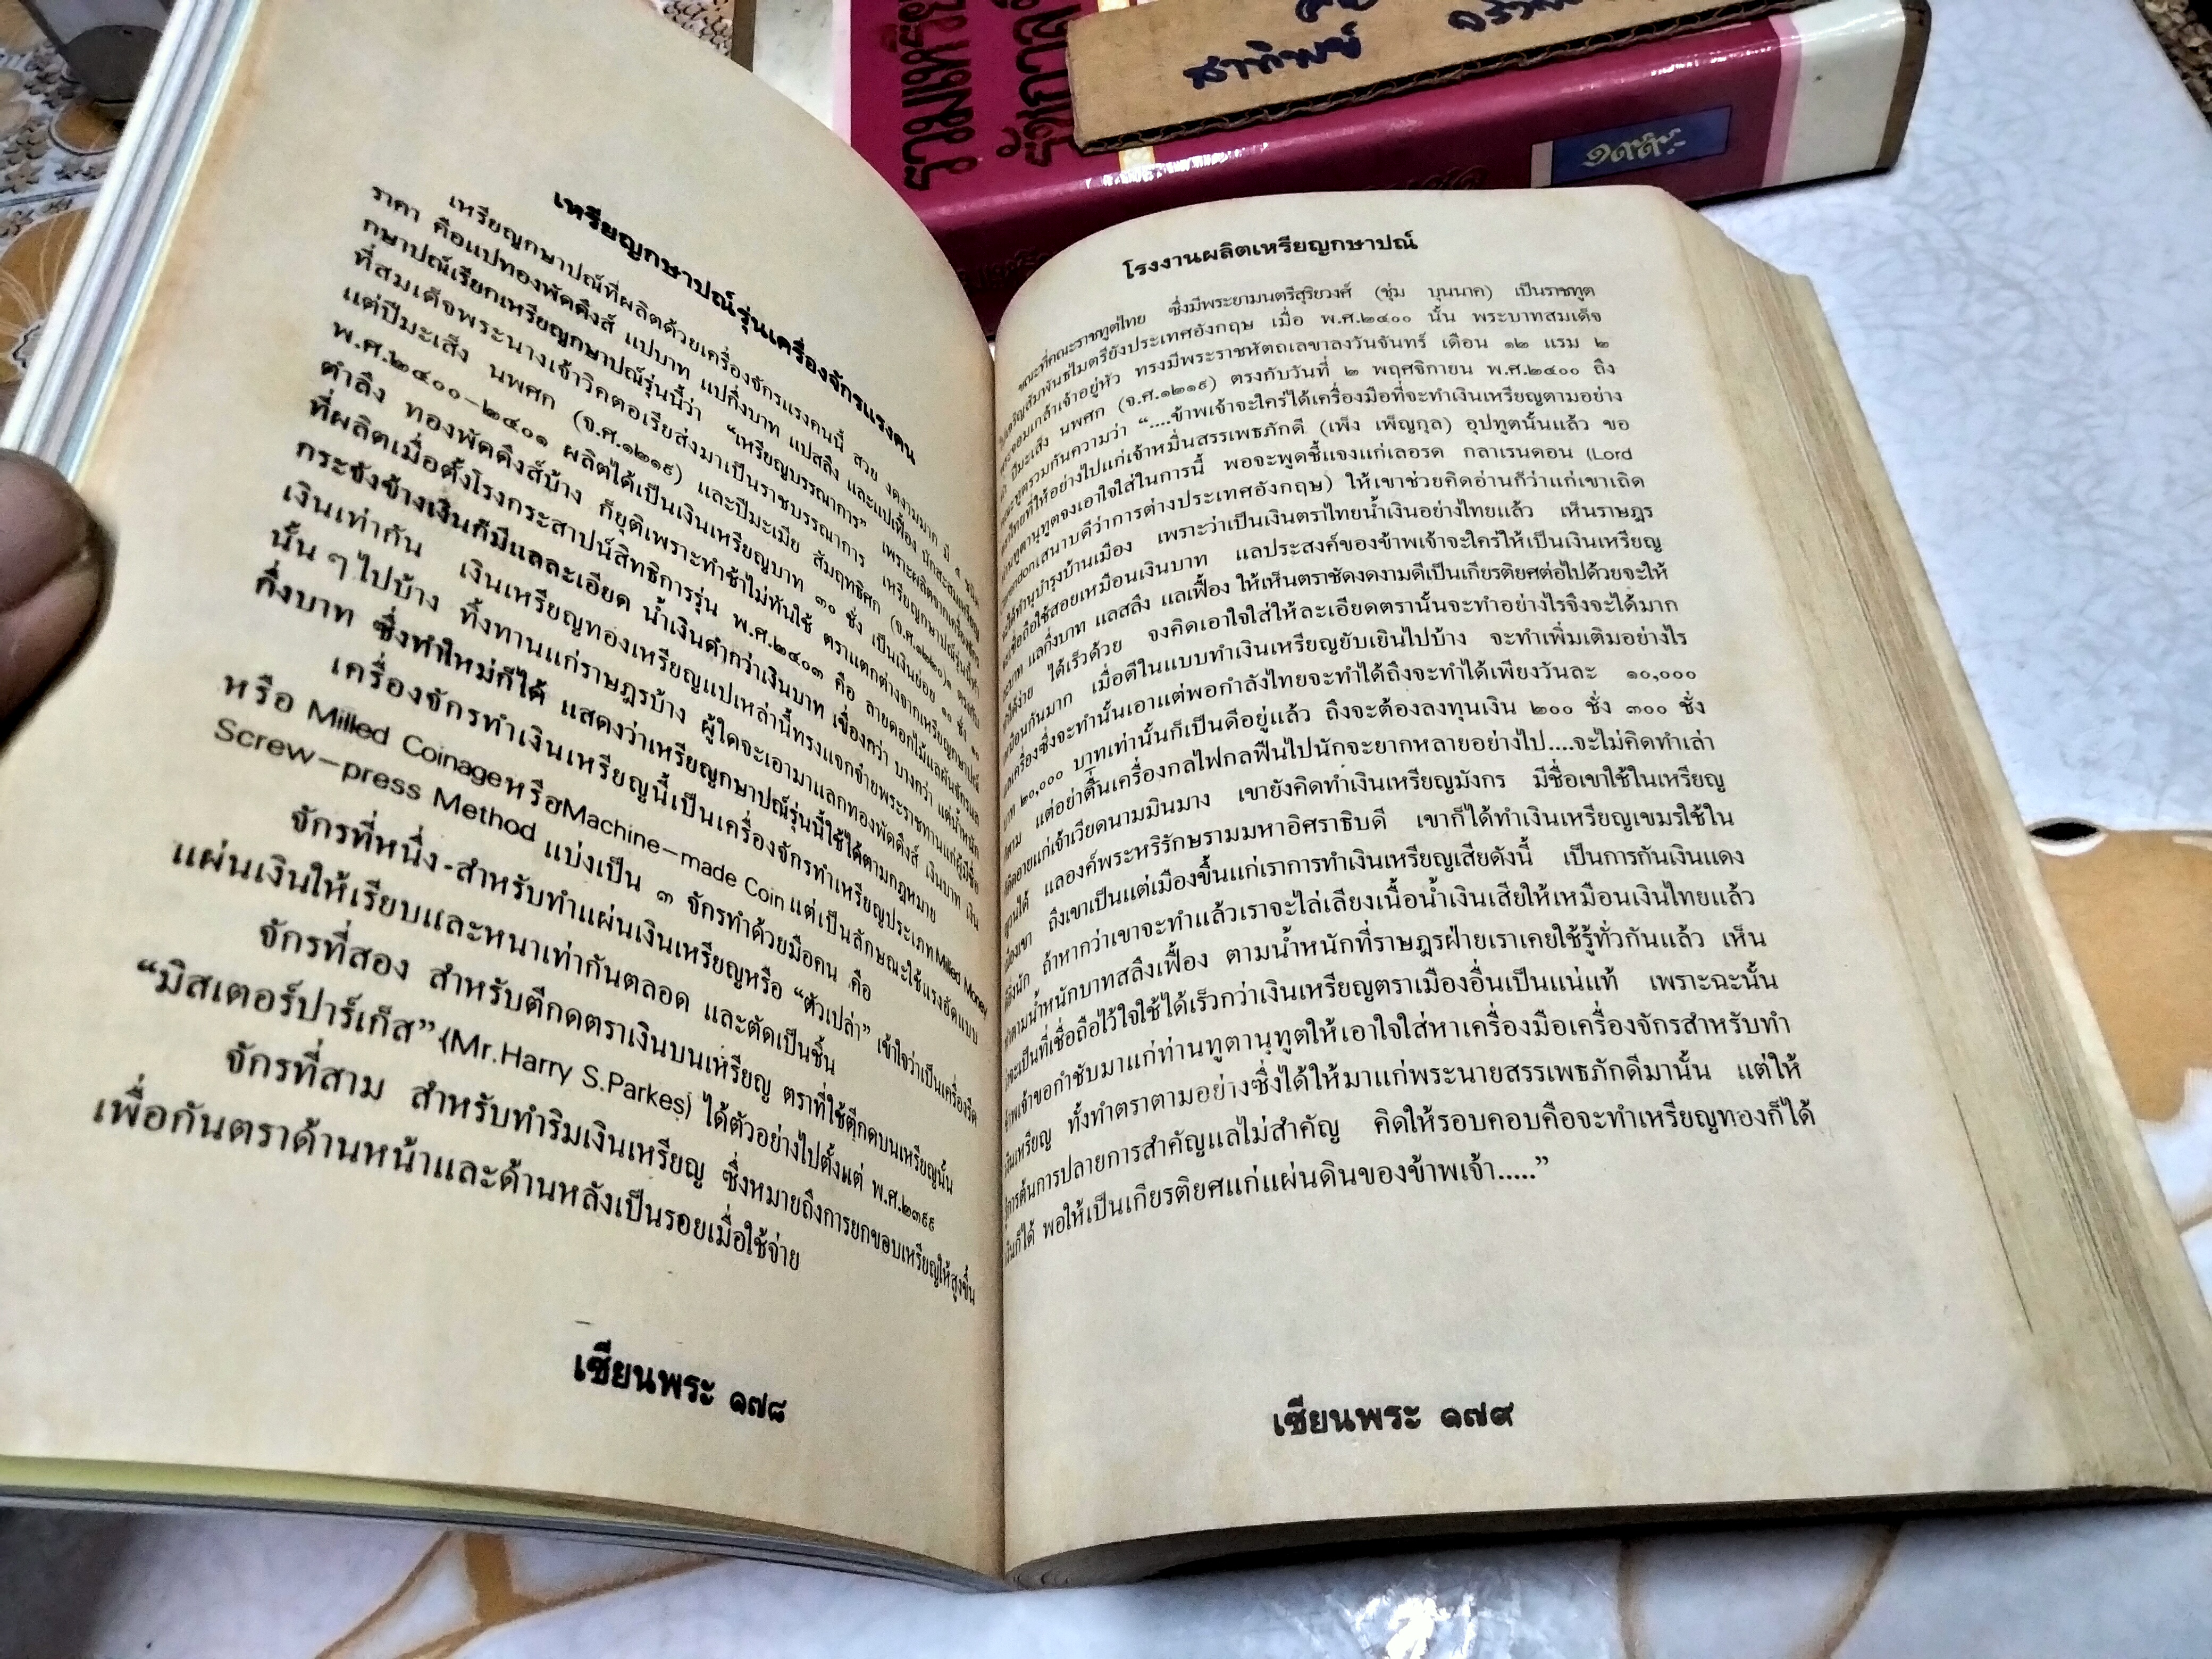 รวมเหรียญ
รัชกาล
สาทิพย์
๑๙๙.-
เหรียญกษาปณ์รุ่นเครื่องจักรแรงคน
เหรียญกษาปณ์ที่ผลิตด้วยเครื่องจักรแรงคนนี้ สวย งดงามมาก มี ๕ ชนิด
ราคา คือแปทองพัดดึงส์ แปบาท แปกึ่งบาท แปสลึง และแปเฟื้อง นักสะสมเหรียญ
กษาปณ์เรียกเหรียญกษาปณ์รุ่นนี้ว่า “เหรียญบรรณาการ” เพราะผลิตจากเครื่องจักร
ที่สมเด็จพระนางเจ้าวิคตอเรียส่งมาเป็นราชบรรณาการ เหรียญกษาปณ์รุ่นนี้ทำ
แต่ปีมะเส็ง นพศก (จ.ศ.๑๒๑๙) และปีมะเมีย สัมฤทธิศก (จ.ศ.๑๒๒๐) ตรงกับ
พ.ศ.๒๔๐๐-๒๔๐๑ ผลิตได้เป็นเงินเหรียญบาท ๓๐ ชั่ง เป็นเงินย่อย ๑๐ ชั่ง ๑๐
ตำลึง ทองพัดดึงส์บ้าง ก็ยุติเพราะทำช้าไม่ทันใช้ ตราแตกต่างจากเหรียญกษาปณ์
ที่ผลิตเมื่อตั้งโรงกระสาปน์สิทธิการรุ่น พ.ศ.๒๔๐๓ คือ ลายดอกไม้แลคันจักรแล
กระจังข้างเงินก็มีแลละเอียด น้ำเงินดำกว่าเงินบาท เขื่องกว่า บางกว่า แต่น้ำหนัก
เงินเท่ากัน เงินเหรียญทองเหรียญแปเหล่านี้ทรงแจกจ่ายพระราชทานแก่ผู้มีชื่อ
นั้น ๆ ไปบ้าง ทิ้งทานแก่ราษฎรบ้าง ผู้ใดจะเอามาแลกทองพัดดึงส์ เงินบาท เงิน
กึ่งบาท ซึ่งทำใหม่ก็ได้ แสดงว่าเหรียญกษาปณ์รุ่นนี้ใช้ได้ตามกฎหมาย
เครื่องจักรทำเงินเหรียญนี้เป็นเครื่องจักรทำเหรียญประเภท Milled Money
หรือ Milled Coinage หรือ Machine-made Coin แต่เป็นลักษณะใช้แรงอัดแบบ
Screw-press Method แบ่งเป็น ๓ จักรทำด้วยมือคน คือ
จักรที่หนึ่ง-สำหรับทำแผ่นเงินเหรียญหรือ “ตัวเปล่า” เข้าใจว่าเป็นเครื่องรีด
แผ่นเงินให้เรียบและหนาเท่ากันตลอด และตัดเป็นชิ้น
จักรที่สอง สำหรับตีกดตราเงินบนเหรียญ ตราที่ใช้ตีกดบนเหรียญนั้น
“มิสเตอร์ปาร์เก็ส” (Mr.Harry S.Parkes) ได้ตัวอย่างไปตั้งแต่ พ.ศ.๒๓๙๙
จักรที่สาม สำหรับทำริมเงินเหรียญ ซึ่งหมายถึงการยกขอบเหรียญให้สูงขึ้น
เพื่อกันตราด้านหน้าและด้านหลังเป็นรอยเมื่อใช้จ่าย
เซียนพระ ๑๗๘
โรงงานผลิตเหรียญกษาปณ์
ขณะที่คณะราชทูตไทย ซึ่งมีพระยามนตรีสุริยวงศ์ (ชุ่ม บุนนาค) เป็นราชทูต
เจริญสัมพันธไมตรียังประเทศอังกฤษ เมื่อ พ.ศ.๒๔๐๐ นั้น พระบาทสมเด็จ
พระจอมเกล้าเจ้าอยู่หัว ทรงมีพระราชหัตถเลขาลงวันจันทร์ เดือน ๑๒ แรม ๒
ปีมะเส็ง นพศก (จ.ศ.๑๒๑๙) ตรงกับวันที่ ๒ พฤศจิกายน พ.ศ.๒๔๐๐ ถึง
คณะทูตรวมกันความว่า “....ข้าพเจ้าจะใคร่ได้เครื่องมือที่จะทำเงินเหรียญตามอย่าง
ไทยที่ให้อย่างไปแก่เจ้าหมื่นสรรเพธภักดี (เพ็ง เพ็ญกุล) อุปทูตนั้นแล้ว ขอ
ท่านทูตานุทูตจงเอาใจใส่ในการนี้ พอจะพูดชี้แจงแก่เลอรด กลาเรนดอน (Lord
เสนาบดีว่าการต่างประเทศอังกฤษ) ให้เขาช่วยคิดอ่านก็ว่าแก่เขาเถิด
จะได้ทำนุบำรุงบ้านเมือง เพราะว่าเป็นเงินตราไทยน้ำเงินอย่างไทยแล้ว เห็นราษฎร
จะเชื่อถือใช้สอยเหมือนเงินบาท แลประสงค์ของข้าพเจ้าจะใคร่ให้เป็นเงินเหรียญ
บาท แลกึ่งบาท แลสลึง แลเฟื้อง ให้เห็นตราชัดงดงามดีเป็นเกียรติยศต่อไปด้วยจะให้
ทำได้ง่าย ได้เร็วด้วย จงคิดเอาใจใส่ให้ละเอียดตรานั้นจะทำอย่างไรจึงจะได้มาก
เหมือนกันมาก เมื่อตีในแบบทำเงินเหรียญยับเยินไปบ้าง จะทำเพิ่มเติมอย่างไร
แลเครื่องซึ่งจะทำนั้นเอาแต่พอกำลังไทยจะทำได้ถึงจะทำได้เพียงวันละ ๑๐,๐๐๐
บาท ๒๐,๐๐๐ บาทเท่านั้นก็เป็นดีอยู่แล้ว ถึงจะต้องลงทุนเงิน ๒๐๐ ชั่ง ๓๐๐ ชั่ง
ก็ตาม แต่อย่าตื้นเครื่องกลไฟกลฟืนไปนักจะยากหลายอย่างไป....จะไม่คิดทำเล่า
ก็คิดอายแก่เจ้าเวียดนามมินมาง เขายังคิดทำเงินเหรียญมังกร มีชื่อเขาใช้ในเหรียญ
ญวนได้ แลองค์พระหริรักษรามมหาอิศราธิบดี เขาก็ได้ทำเงินเหรียญเขมรใช้ใน
เมืองเขา ถึงเขาเป็นแต่เมืองขึ้นแก่เราการทำเงินเหรียญเสียดังนี้ เป็นการกันเงินแดง
ถ้าหากว่าเขาจะทำแล้วเราจะไล่เลียงเนื้อน้ำเงินเสียให้เหมือนเงินไทยแล้ว
ทำตามน้ำหนักบาทสลึงเฟื้อง ตามน้ำหนักที่ราษฎรฝ่ายเราเคยใช้รู้ทั่วกันแล้ว เห็น
จะเป็นที่เชื่อถือไว้ใจใช้ได้เร็วกว่าเงินเหรียญตราเมืองอื่นเป็นแน่แท้ เพราะฉะนั้น
ข้าพเจ้าขอกำชับมาแก่ท่านทูตานุทูตให้เอาใจใส่หาเครื่องมือเครื่องจักรสำหรับทำ
เงินเหรียญ ทั้งทำตราตามอย่างซึ่งได้ให้มาแก่พระนายสรรเพธภักดีมานั้น แต่ให้
รู้การต้นการปลายการสำคัญแลไม่สำคัญ คิดให้รอบคอบคือจะทำเหรียญทองก็ได้
เงินก็ได้ พอให้เป็นเกียรติยศแก่แผ่นดินของข้าพเจ้า.....”
เซียนพระ ๑๗๙